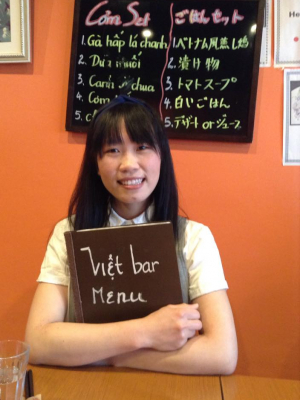 Cơm Set
1. Gà hấp lá chanh
2. Dưa muối
3. Canh chua
4. Cơm
5.
ごはんセット
1. ベトナム風蒸し鶏
2. 漬け物
3. トマトスープ
4. 白いごはん
5. デザート or ジュース
He
Việt bar
MENU